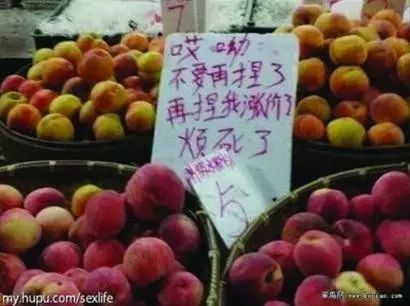 7
哎呦
不要再捏了
再捏我涨价了
烦死了
5
my.hupu.com/sexlife
菜鸟的